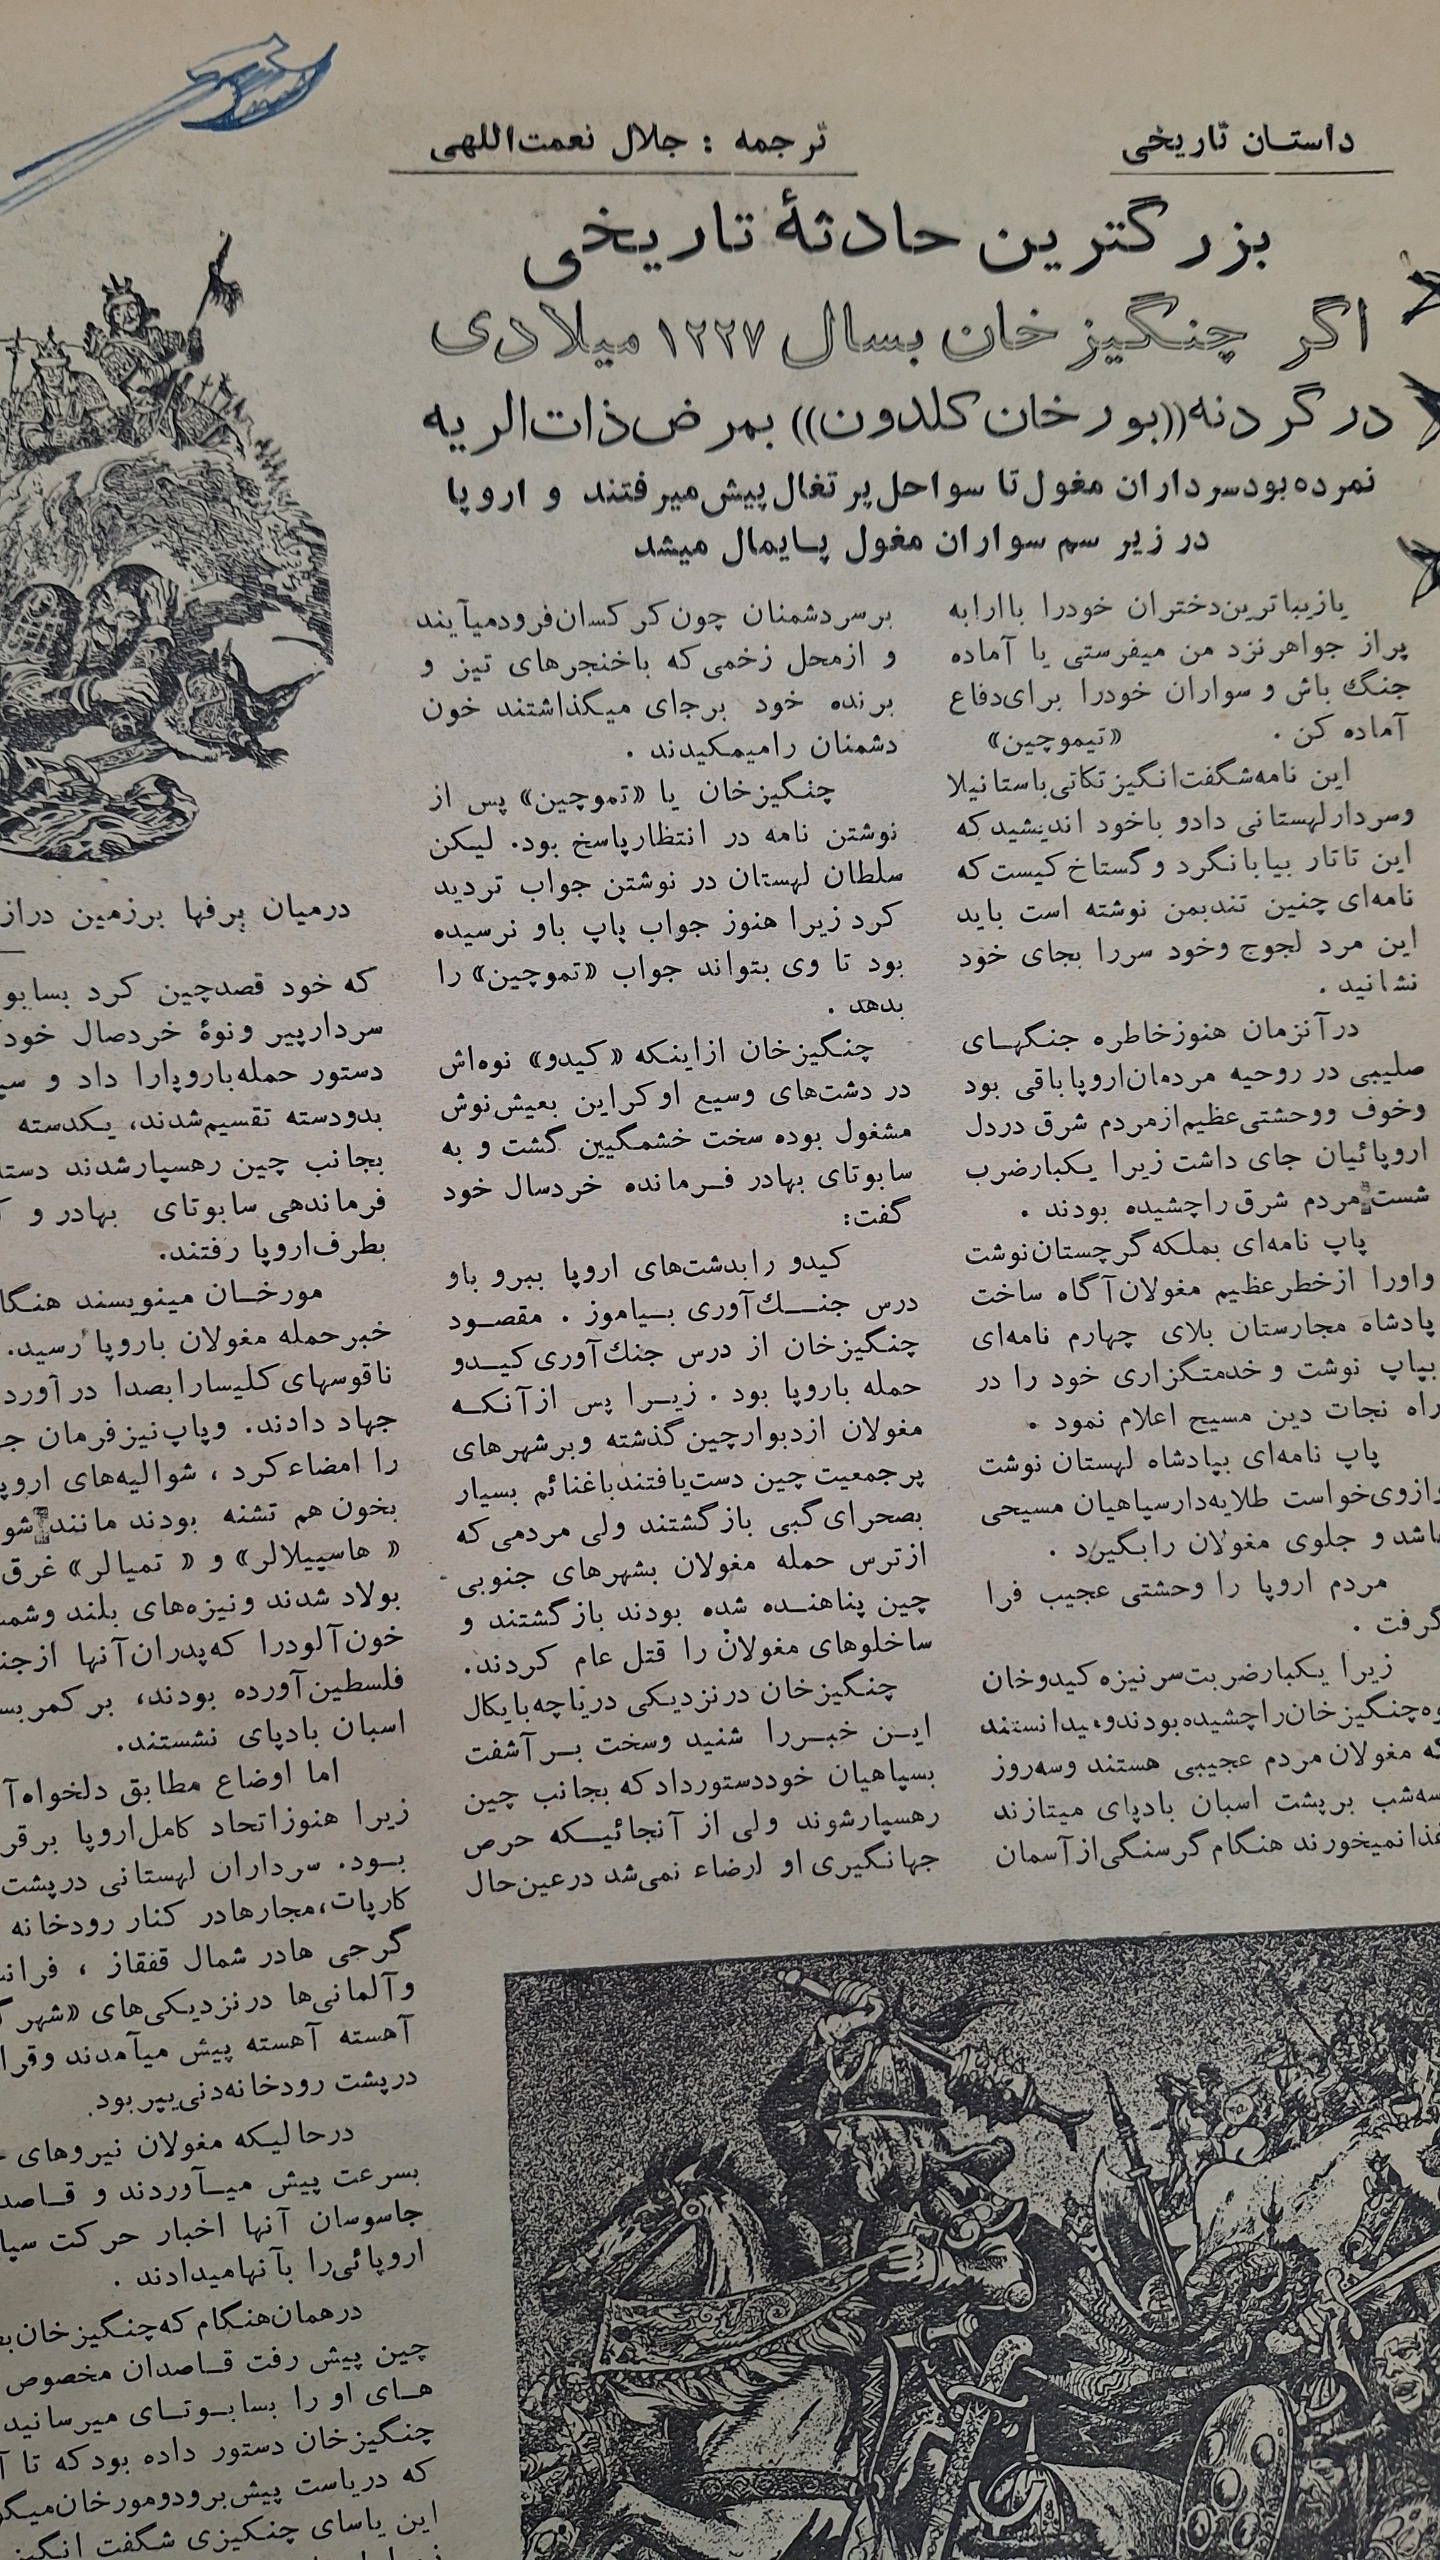 داستان تاریخی
ترجمه : جلال نعمت‌اللهی
بزرگترین حادثهٔ تاریخی
اگر چنگیزخان بسال ۱۲۲۷ میلادی
در گردنه((بورخان کلدون)) بمرض ذات‌الریه
نمرده بود سرداران مغول تا سواحل پرتغال پیش میرفتند و اروپا
در زیر سم سواران مغول پایمال میشد
یازیباترین دختران خودرا باارابه
پراز جواهر نزد من میفرستی یا آماده
جنگ باش و سواران خودرا برای دفاع
آماده کن . «تیموچین»
این نامه شگفت‌انگیز تکانی باستانیلا
وسردار لهستانی داد و باخود اندیشید که
این تاتار بیابانگرد و گستاخ کیست که
نامه‌ای چنین تندبمن نوشته است باید
این مرد لجوج وخود سررا بجای خود
نشانید .
درآنزمان هنوز خاطره جنگهای
صلیبی در روحیه مردمان اروپا باقی بود
وخوف ووحشتی عظیم ازمردم شرق دردل
اروپائیان جای داشت زیرا یکبار ضرب
شست مردم شرق راچشیده بودند .
پاپ نامه‌ای بملکه گرجستان نوشت
واورا ازخطر عظیم مغولان آگاه ساخت
پادشاه مجارستان بلای چهارم نامه‌ای
بپاپ نوشت و خدمتگزاری خود را در
راه نجات دین مسیح اعلام نمود .
پاپ نامه‌ای بپادشاه لهستان نوشت
وازوی خواست طلایه‌دار سپاهیان مسیحی
باشد و جلوی مغولان رابگیرد .
مردم اروپا را وحشتی عجیب فرا
گرفت .
زیرا یکبار ضربت سر نیزه کیدوخان
وه چنگیزخان راچشیده بودند ومیدانستند
که مغولان مردم عجیبی هستند وسه روز
سه‌شب برپشت اسبان بادپای میتازند
غذا نمیخورند هنگام گرسنگی از آسمان
برسر دشمنان چون کرکسان فرودمیآیند
و ازمحل زخمی که باخنجرهای تیز و
برنده خود برجای میگذاشتند خون
دشمنان رامیمکیدند .
چنگیزخان یا «تموچین» پس از
نوشتن نامه در انتظار پاسخ بود. لیکن
سلطان لهستان در نوشتن جواب تردید
کرد زیرا هنوز جواب پاپ باو نرسیده
بود تا وی بتواند جواب «تموچین» را
بدهد .
چنگیزخان ازاینکه «کیدو» نوه‌اش
در دشت‌های وسیع اوکراین بعیش‌نوش
مشغول بوده سخت خشمگیین گشت و به
سابوتای بهادر فرمانده خردسال خود
گفت:
کیدو رابدشت‌های اروپا ببرو باو
درس جنگ‌آوری بیاموز . مقصود
چنگیزخان از درس جنك‌آوری کیدو
حمله باروپا بود . زیرا پس ازآنکه
مغولان ازدیوارچین گذشته وبرشهرهای
پرجمعیت چین دست‌یافتند باغنائم بسیار
بصحرای گبی بازگشتند ولی مردمی که
ازترس حمله مغولان بشهرهای جنوبی
چین پناهنده شده بودند بازگشتند و
ساخلوهای مغولان را قتل عام کردند.
چنگیزخان درنزدیکی دریاچه بایکال
این خبررا شنید وسخت برآشفت
بسپاهیان خوددستورداد که بجانب چین
رهسپارشوند ولی از آنجائیکه حرص
جهانگیری او ارضاء نمی‌شد درعین‌حال
درمیان برفها برزمین دراز
که خود قصدچین کرد بسابو
سردارپیر ونوهٔ خردصال خود
دستور حمله‌باروپارا داد و سپ
بدودسته تقسیم‌شدند، یکدسته
بجانب چین رهسپارشدند دسته
فرماندهی سابوتای بهادر و ک
بطرف‌اروپا رفتند.
مورخان مینویسند هنگا
خبرحمله مغولان باروپا رسید.
ناقوسهای کلیسارابصدا درآورد
جهاد دادند. وپاپ‌نیز فرمان ج
را امضاءکرد ، شوالیه‌های اروپ
بخون هم تشنه بودند مانند شو
« هاسپیلالر» و « تمپالر» غرق
بولاد شدند ونیزه‌های بلند وشمش
خون‌آلودرا که‌پدران آنها ازجن
فلسطین‌آورده بودند، برکمربس
اسبان بادپای نشستند.
اما اوضاع مطابق دلخواه آ
زیرا هنوزاتحاد کامل اروپا برقر
بود. سرداران لهستانی درپشت
کارپات،مجارهادر کنار رودخانه
گرجی هادر شمال قفقاز ، فران
وآلمانی‌ها درنزدیکی‌های «شهر ک
آهسته آهسته پیش میآمدند وقرا
درپشت رودخانه‌دنی‌پیر بود.
درحالیکه مغولان نیروهای
بسرعت پیش میآوردند و قاصد
جاسوسان آنها اخبار حرکت سپا
اروپائی‌را بآنهامیدادند .
درهمان‌هنگام که‌چنگیزخان‌بط
چین پیش رفت قاصدان مخصوص
های او را بسابوتای میرسانید
چنگیزخان دستور داده بودکه تا آ
که دریاست پیش‌برودومورخان‌میگو
این یاسای چنگیزی شگفت انگیز